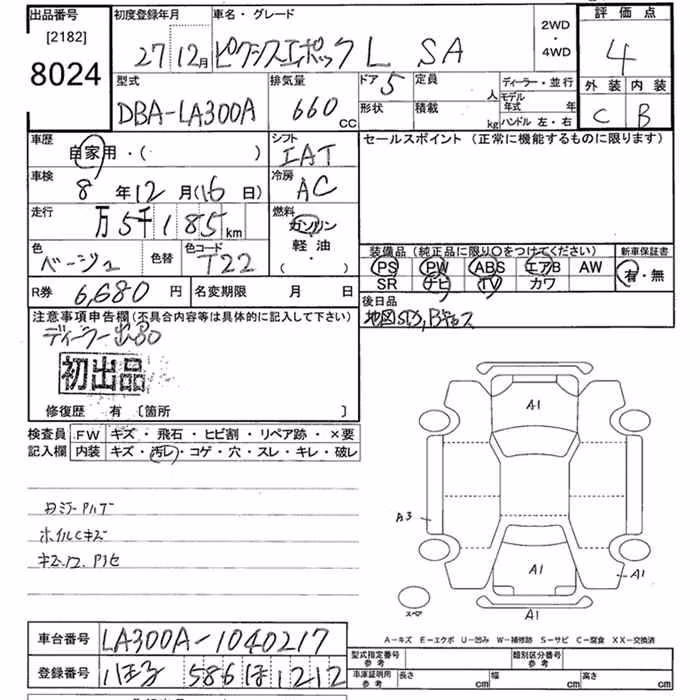 出品番号
[2182]
8024
初度登録年月
27 12月
車名・グレード
ピクシスエポック L SA
2WD
・
4WD
評価点
4
外装 内装
C B
型式
DBA-LA300A
排気量
660
CC
ドア 5
形状
定員
人
積載
kg
ディーラー・並行
モデル
年式 年
ハンドル 左・右
車歴
自家用・( )
シフト
IAT
セールスポイント (正常に機能するものに限ります)
車検
8 年 12 月 (16 日)
冷房
AC
走行
万 5千 1 8 5 km
燃料
ガソリン
軽油
( ・ )
色
ベージュ
色替
色コード
T22
装備品 (純正品に限り〇をつけてください)
PS PW ABS エアB AW
SR ナビ TV カワ
新車保証書
有・無
R券 6,680 円
名変期限 月 日
後日品
注意事項申告欄(不具合内容等は具体的に記入して下さい)
初出品
修復歴 有 〔箇所 〕
検査員 FW キズ・飛石・ヒビ割・リペア跡・×要
記入欄 内装 キズ・汚レ・コゲ・穴・スレ・キレ・破レ
ホイルキズ
A1
A3
A1
A1
A1
スペア
A-キズ E-エクボ U-凹み W-補修跡 S-サビ C-腐食 XX-交換済
車台番号 LA300A-1040217
登録番号 586 ほ 1212
型式指定番号
参考
類別区分番号
参考
車庫証明用
参考
長さ cm 幅 cm 高さ cm